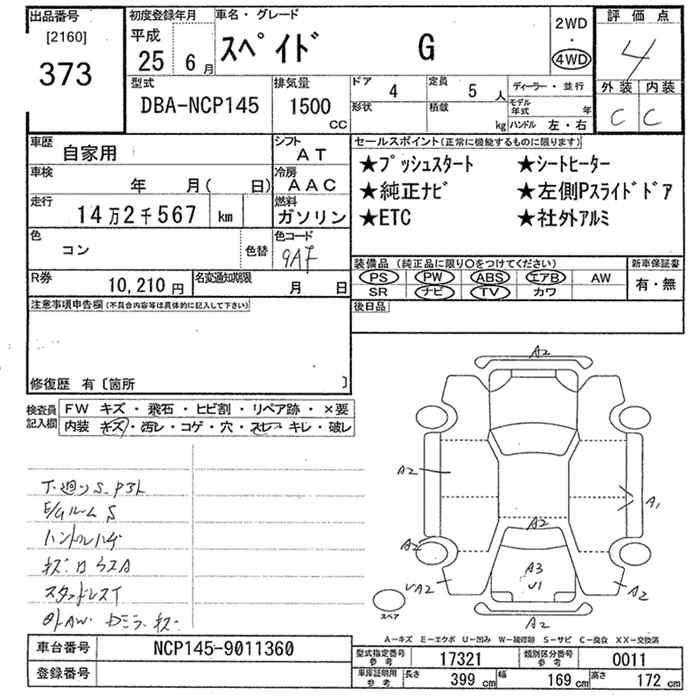 出品番号
[2160]
373
初度登録年月
平成
25 年 6 月
車名・グレード
スペイド G
2WD
・
4WD
評価点
4
外装 内装
C C
型式
DBA-NCP145
排気量
1500
CC
ドア
4
定員
5 人
ディーラー・並行
形状
積載
kg
モデル年式 年
ハンドル 左・右
車歴
自家用
シフト
AT
車検
年 月( 日)
冷房
AAC
走行
14万2千567 km
燃料
ガソリン
色
コン
色替
色コード
9AF
R券
10,210 円
名変通知期限
月 日
セールスポイント(正常に機能するものに限ります)
★プッシュスタート ★シートヒーター
★純正ナビ ★左側Pスライドドア
★ETC ★社外アルミ
装備品(純正品に限り〇をつけてください)
PS PW ABS エアB AW
SR ナビ TV カワ
新車保証書
有・無
後日品
注意事項申告欄(不具合内容等は具体的に記入して下さい)
修復歴 有〔箇所 〕
検査員記入欄
FW キズ・飛石・ヒビ割・リペア跡・×要
内装 キズ・汚レ・コゲ・穴・スレ・キレ・破レ
下廻りS.P3L
E/GルームS
ハンドルハゲ
キズロウスA
スタッドレスT
外AW. Dミラーキズ
A2
A2
A1
A2
A2
A3
U1
UA2
A2
A2
スペア
A-キズ E-エクボ U-凹み W-補修跡 S-サビ C-腐食 XX-交換済
車台番号
NCP145-9011360
登録番号
型式指定番号
参考
17321
類別区分番号
参考
0011
車庫証明用
参考
長さ 399 cm
幅 169 cm
高さ 172 cm